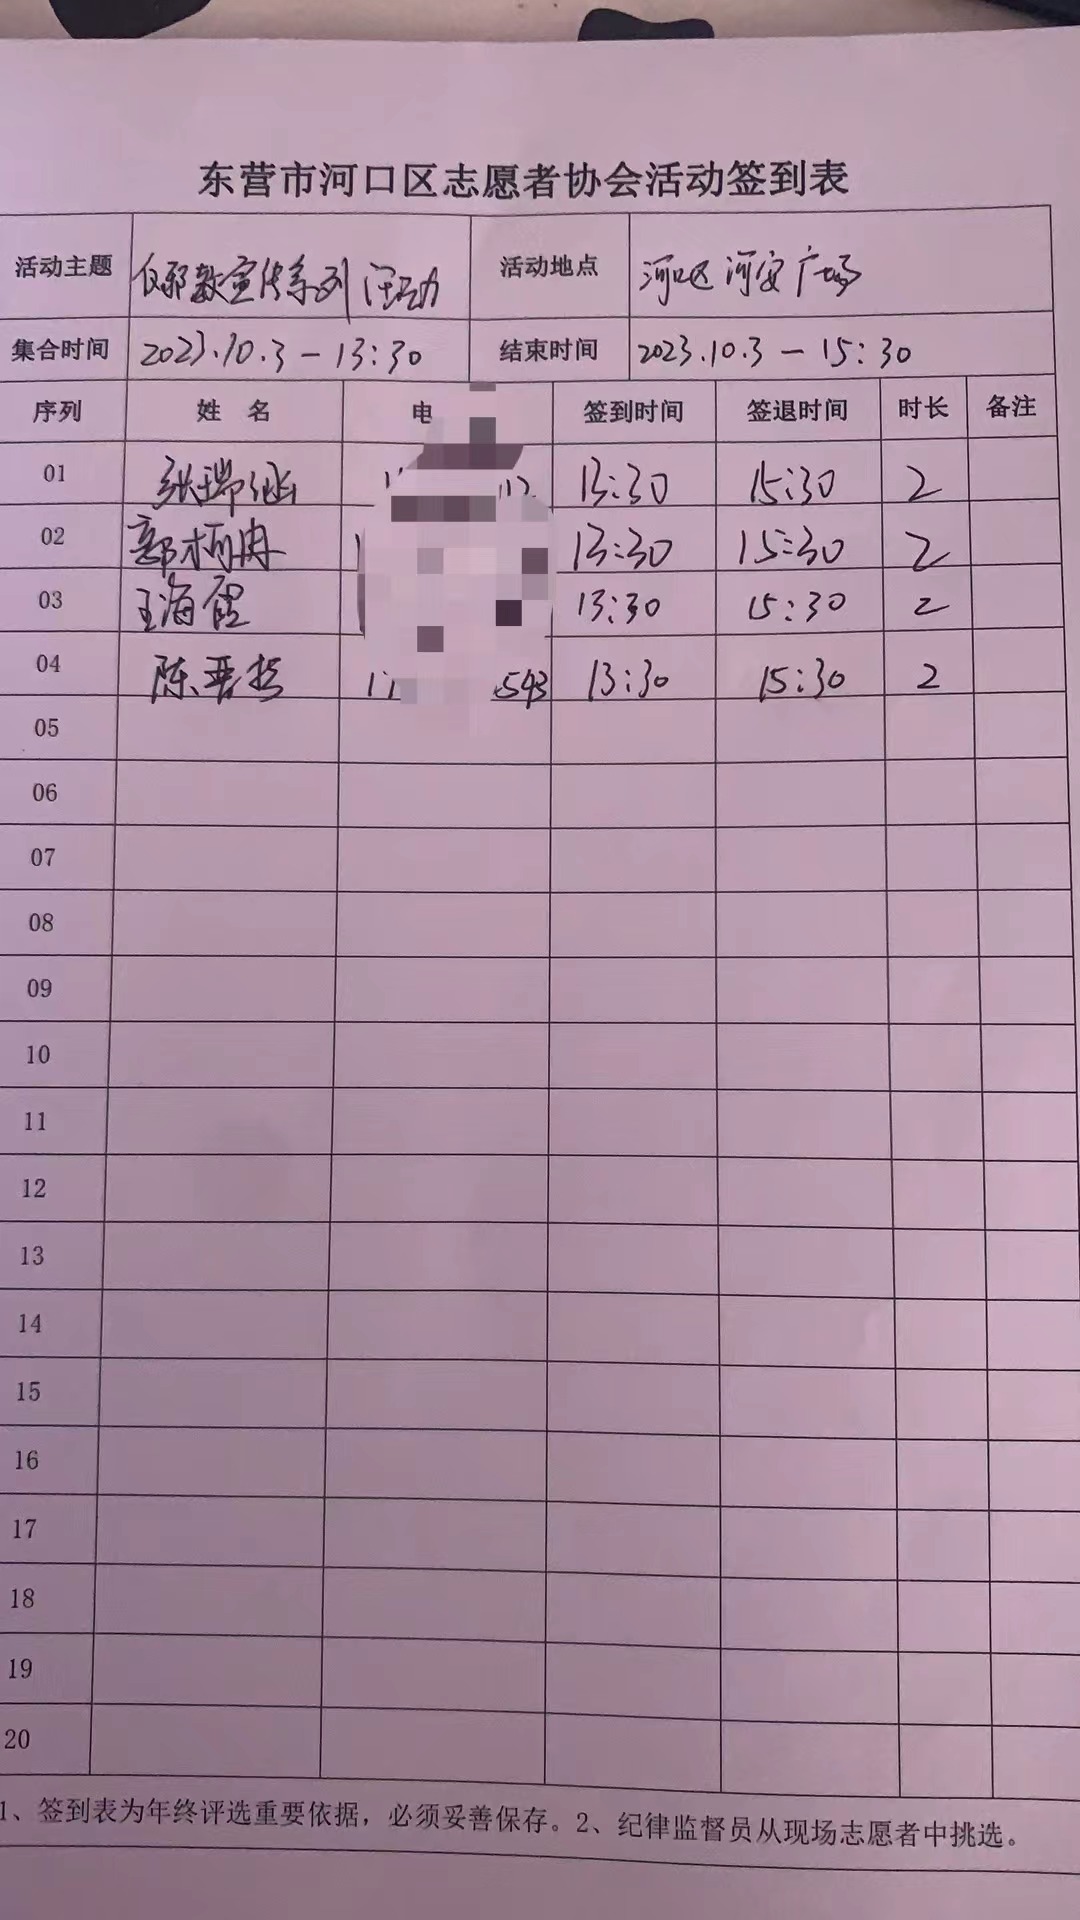 东营市河口区志愿者协会活动签到表
活动主题 反邪教宣传系列活动 活动地点 河口区 河安广场
集合时间 2023.10.3 — 13:30 结束时间 2023.10.3 — 15:30
序列 姓 名 电 签到时间 签退时间 时长 备注
01 张瑞涵 13:30 15:30 2
02 郭柯冉 13:30 15:30 2
03 王海霞 13:30 15:30 2
04 陈晋哲 543 13:30 15:30 2
05
06
07
08
09
10
11
12
13
14
15
16
17
18
19
20
1、签到表为年终评选重要依据，必须妥善保存。2、纪律监督员从现场志愿者中挑选。